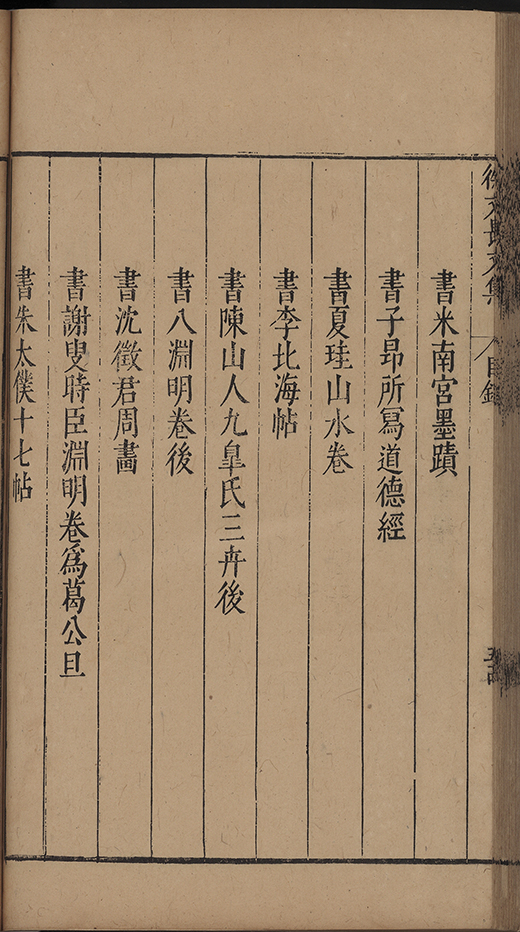 徐文長文集
目錄
書米南宮墨蹟
書子昂所寫道德經
書夏珪山水卷
書李北海帖
書陳山人九臯氏三卉後
書八淵明卷後
書沈徵君周畵
書謝叟時臣淵明卷爲葛公旦
書朱太僕十七帖